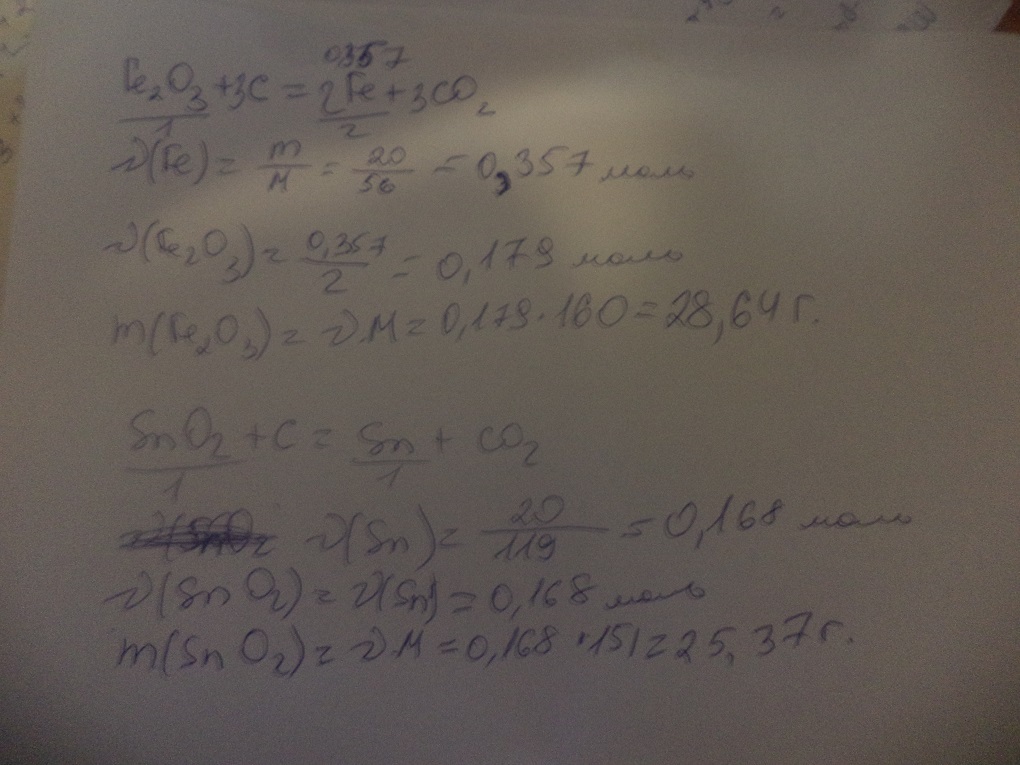 0357
Fe₂O₃ + 3C = 2Fe + 3CO₂
1 2
ν(Fe) = m/M = 20/56 = 0,357 моль
ν(Fe₂O₃) = 0,357/2 = 0,179 моль
m(Fe₂O₃) = ν.M = 0,179·160 = 28,64 г.
SnO₂ + C = Sn + CO₂
1 1
ν(Sn) = 20/119 = 0,168 моль
ν(SnO₂) = ν(Sn) = 0,168 моль
m(SnO₂) = ν.M = 0,168·151 = 25,37 г.